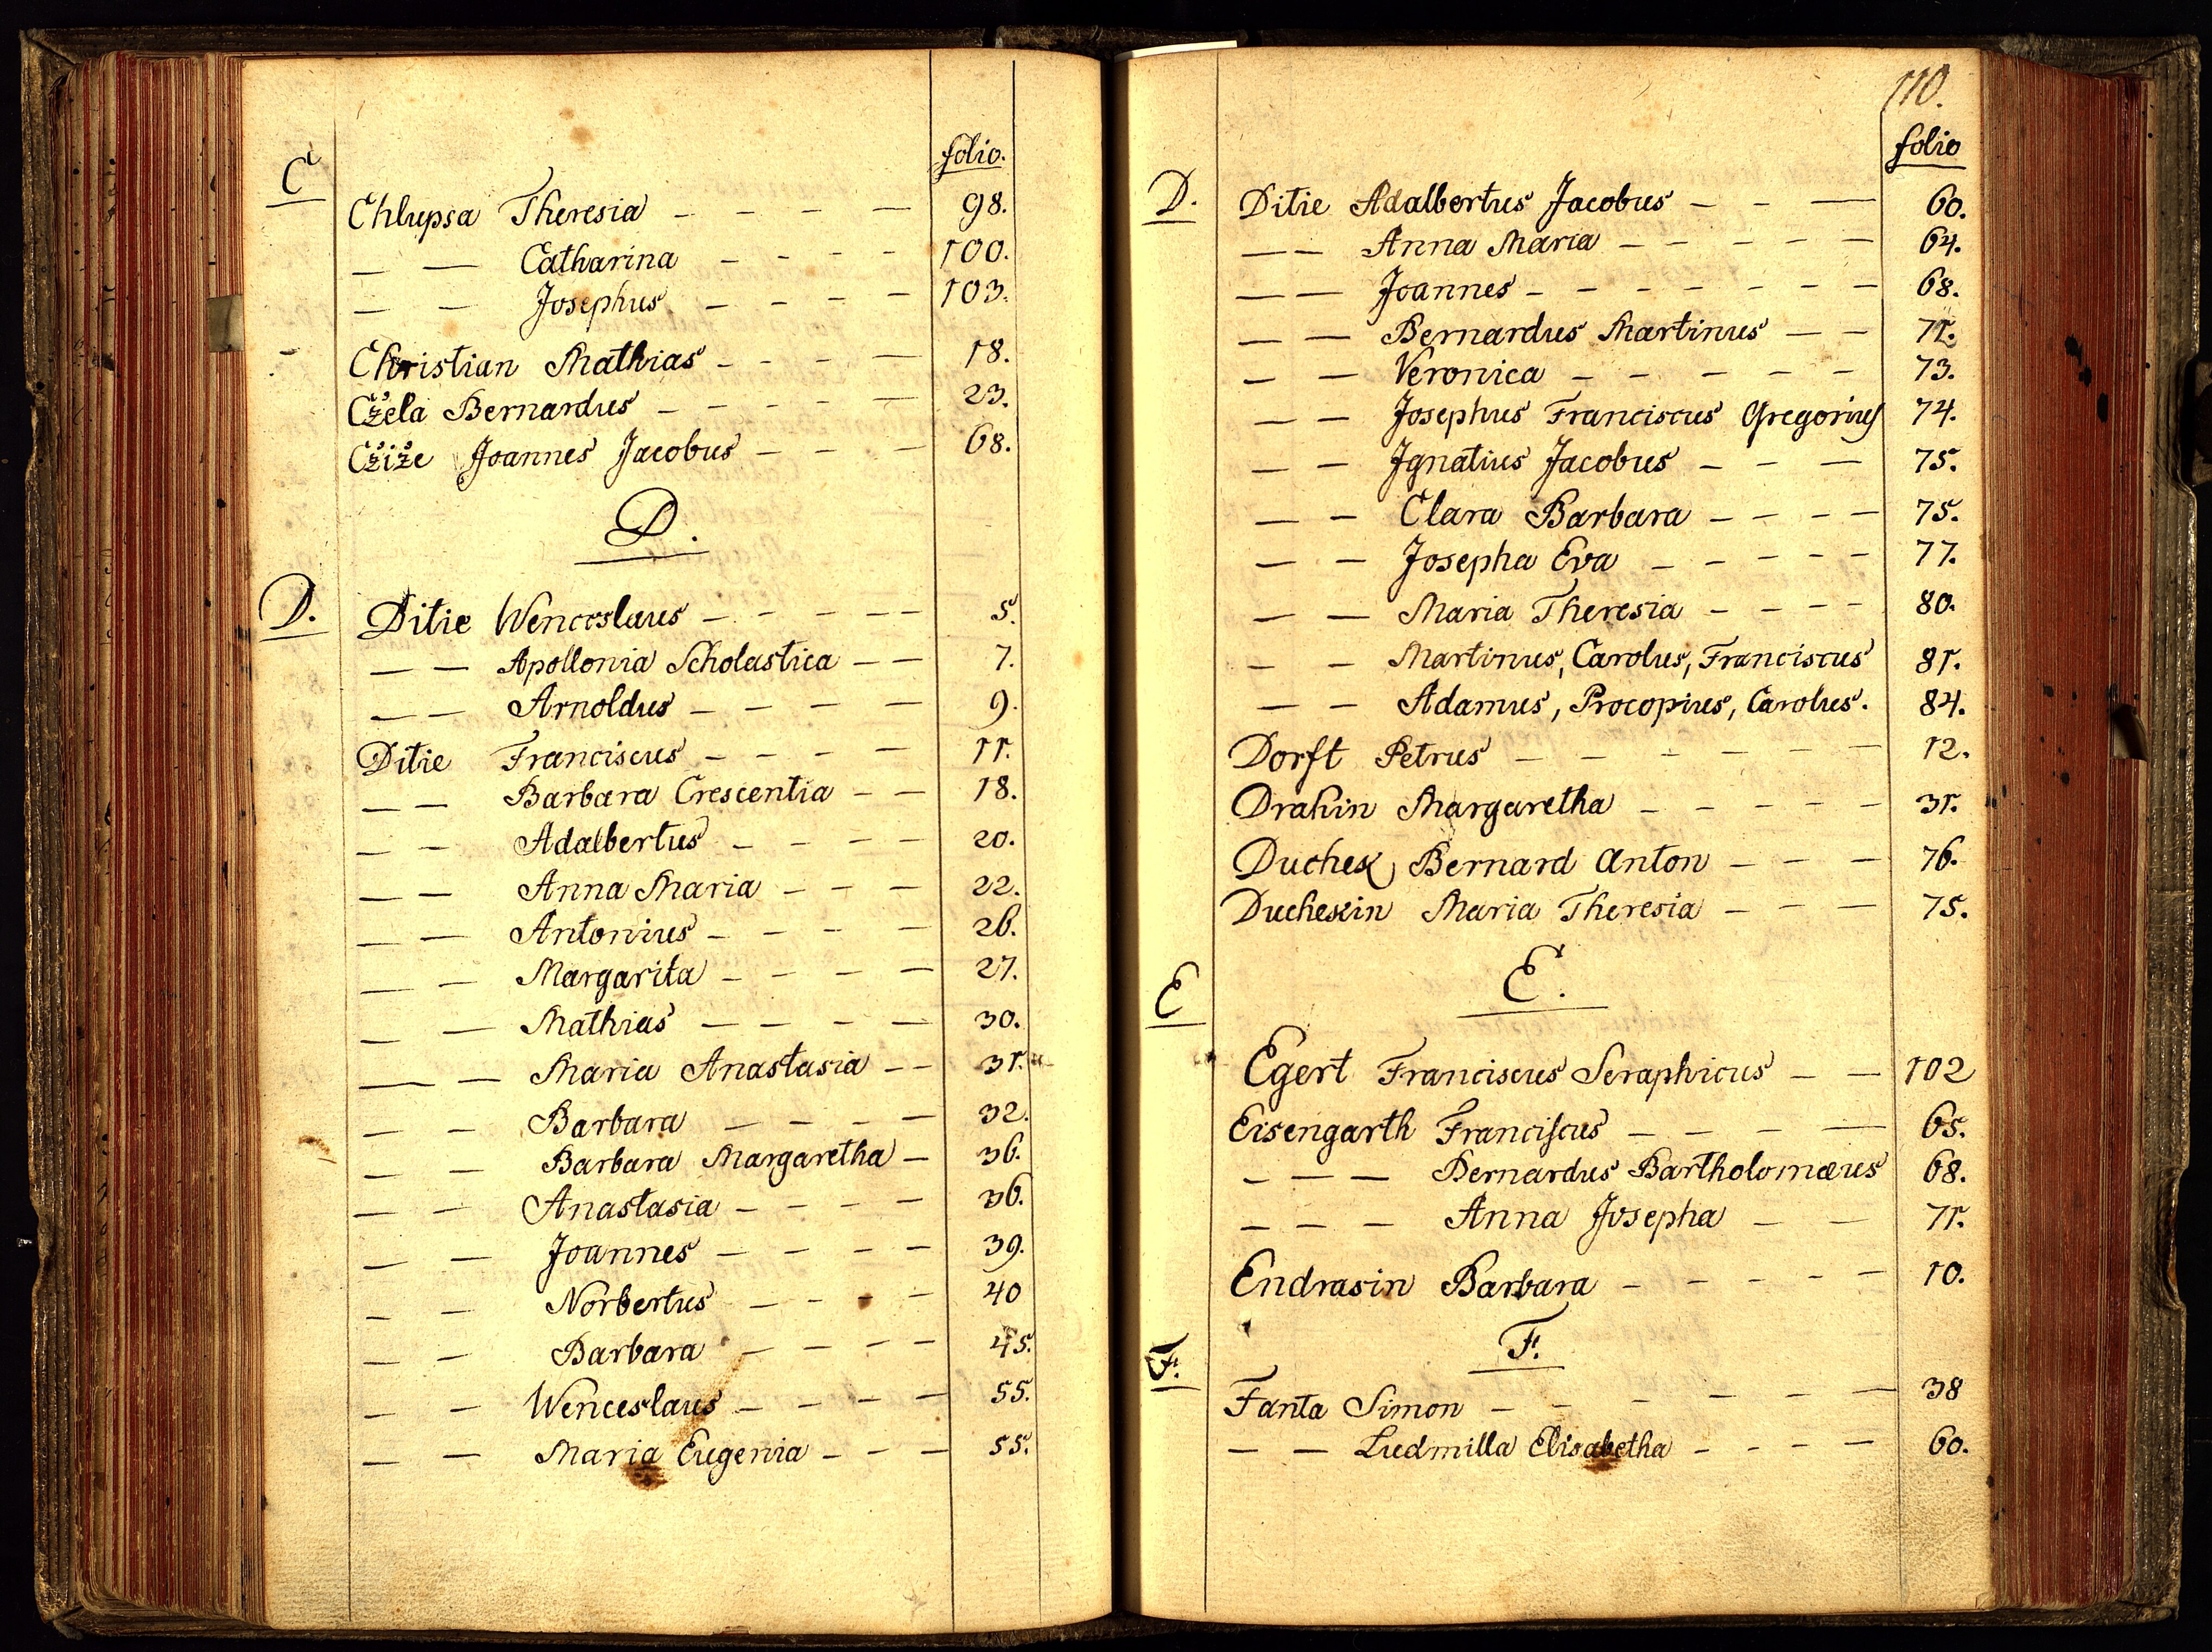 folio.
C
Chlupsa Theresia - - - - 98.
— — Catharina - - - - 100.
— — Josephus - - - - 103.
Christian Mathias - - - - 18.
Cžela Bernardus - - - - - 23.
Cžiže Joannes Jacobus - - - 68.
D.
D. Ditie Wenceslaus - - - - - 5.
— — Apollonia Scholastica - - 7.
— — Arnoldus - - - - 9.
Ditie Franciscus - - - - 11.
— — Barbara Crescentia - - 18.
— — Adalbertus - - - - 20.
— — Anna Maria - - - 22.
— — Antonius - - - - 26.
— — Margarita - - - - 27.
— — Mathias - - - - 30.
— — Maria Anastasia - - 31.
— — Barbara - - - - 32.
— — Barbara Margaretha - 36.
— — Anastasia - - - - 36.
— — Joannes - - - - 39.
— — Norbertus - - - - 40
— — Barbara - - - - 45.
— — Wenceslaus - - - - 55.
— — Maria Eugenia - - - 55.
110.
folio
D. Ditie Adalbertus Jacobus - - — 60.
— — Anna Maria - - - - - 64.
— — Joannes - - - - - - - 68.
— — Bernardus Martinus - - 71.
— — Veronica - - - - - 73.
— — Josephus Franciscus Gregorius 74.
— — Ignatius Jacobus - - - 75.
— — Clara Barbara - - - - 75.
— — Josepha Eva - - - - - 77.
— — Maria Theresia - - - - 80.
— — Martinus, Carolus, Franciscus 81.
— — Adamus, Procopius, Carolus. 84.
Dorft Petrus - - - - - - 12.
Drahin Margaretha - - - - - 31.
Duchek Bernard Anton - - - 76.
Duchekin Maria Theresia - - - 75.
E
E.
Egert Franciscus Seraphicus - - 102
Eisengarth Franciscus - - - - 65.
- — — Bernardus Bartholomæus 68.
- - - Anna Josepha - - 71.
Endrasin Barbara - - - - - 10.
F.
F.
Fanta Simon - - - - - - 38
— — Ludmilla Elisabetha - - - - 60.